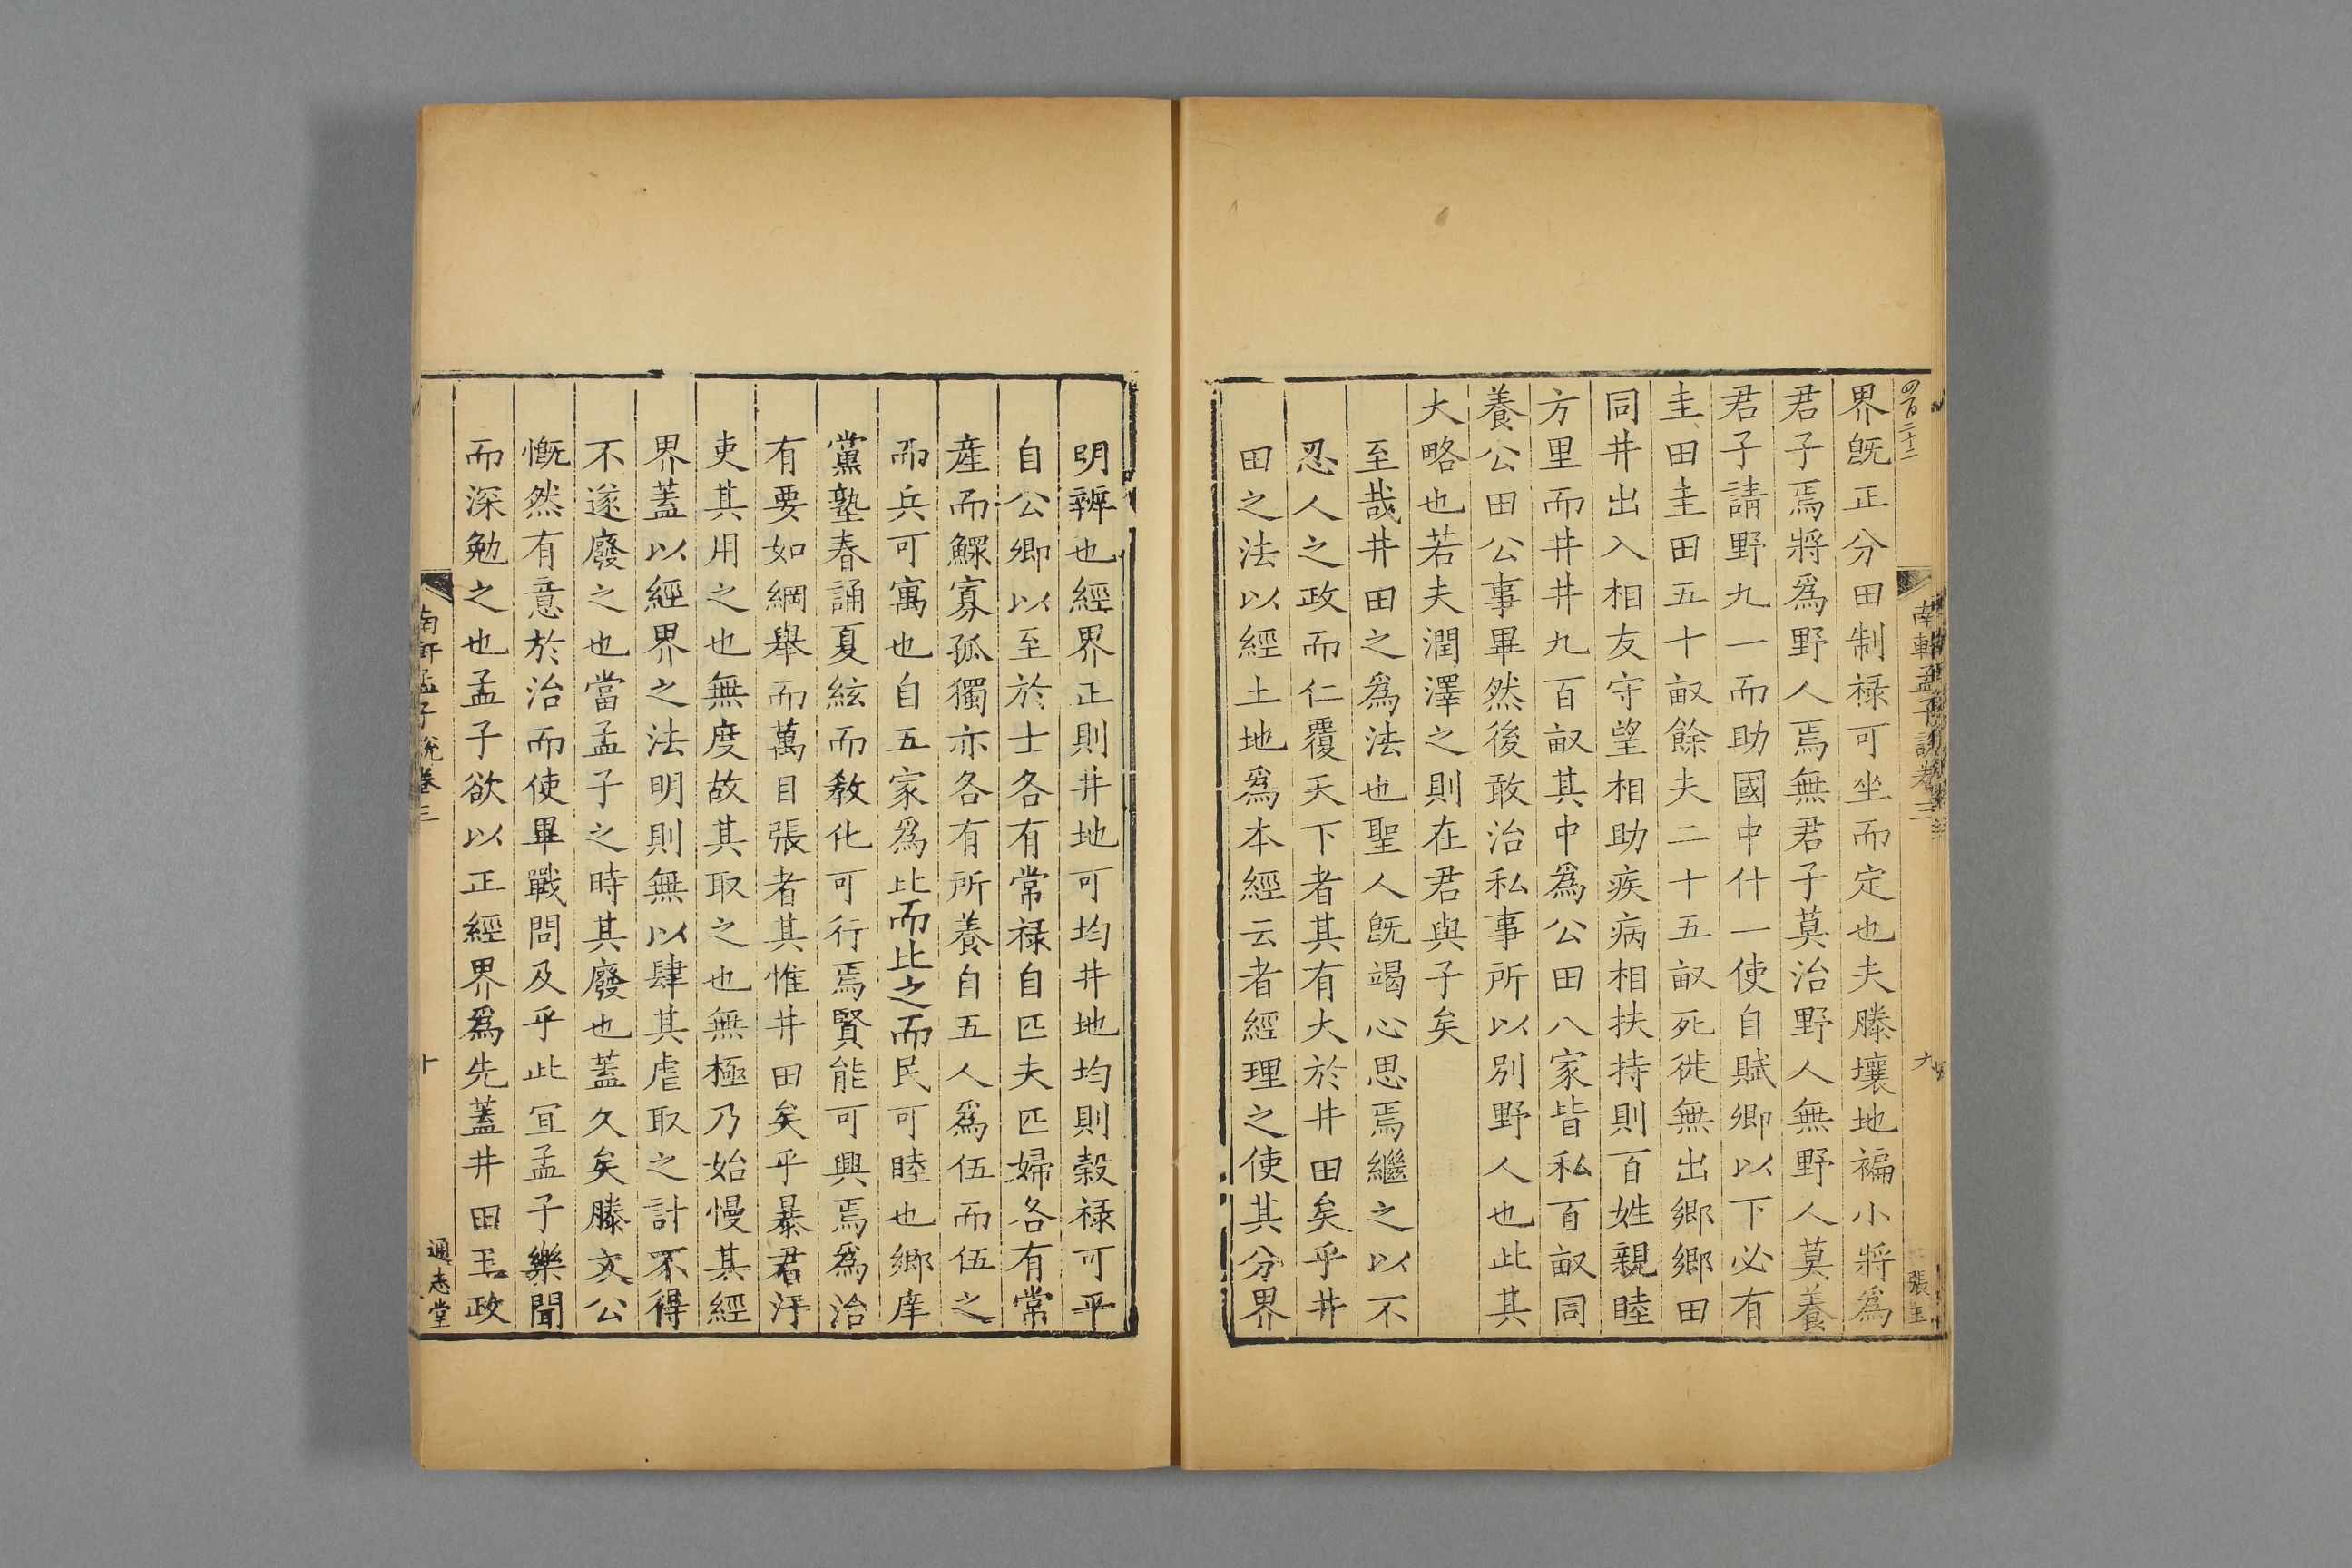 四百二十二
南軒孟子說卷三
九
界旣正分田制祿可坐而定也夫滕壤地褊小將爲
君子焉將爲野人焉無君子莫治野人無野人莫養
君子請野九一而助國中什一使自賦卿以下必有
圭田圭田五十畝餘夫二十五畝死徙無出鄉鄉田
同井出入相友守望相助疾病相扶持則百姓親睦
方里而井井九百畝其中爲公田八家皆私百畝同
養公田公事畢然後敢治私事所以別野人也此其
大略也若夫潤澤之則在君與子矣
至哉井田之爲法也聖人旣竭心思焉繼之以不
忍人之政而仁覆天下者其有大於井田矣乎井
田之法以經土地爲本經云者經理之使其分界
明辨也經界正則井地可均井地均則穀祿可平
自公卿以至於士各有常祿自匹夫匹婦各有常
產而鰥寡孤獨亦各有所養自五人爲伍而伍之
而兵可寓也自五家爲比而比之而民可睦也鄉庠
黨塾春誦夏絃而敎化可行焉賢能可興焉爲治
有要如綱舉而萬目張者其惟井田矣乎暴君汙
吏其用之也無度故其取之也無極乃始慢其經
界蓋以經界之法明則無以肆其虐取之計不得
不遂廢之也當孟子之時其廢也蓋久矣滕文公
慨然有意於治而使畢戰問及乎此宜孟子樂聞
而深勉之也孟子欲以正經界爲先蓋井田王政
南軒孟子說卷三
十
通志堂